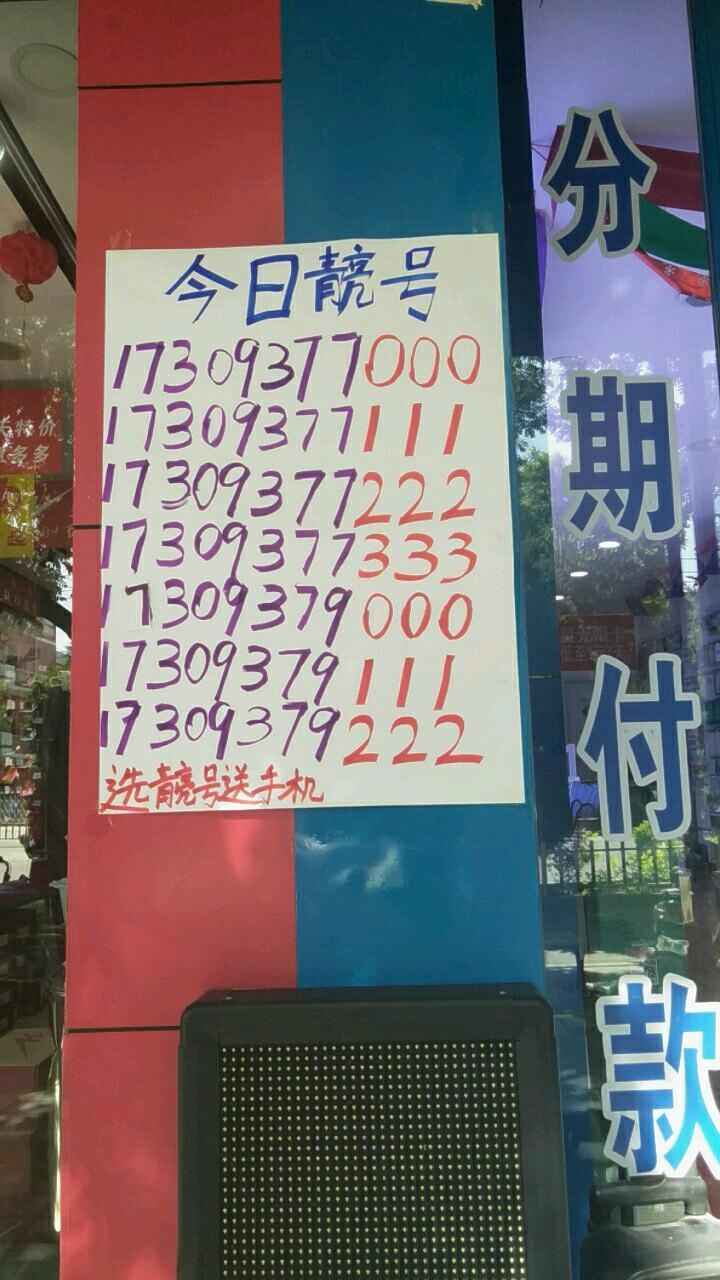 今日靓号
17309377000
17309377111
17309377222
17309377333
17309379000
17309379111
17309379222
选靓号送手机
分期付款
特价
多多